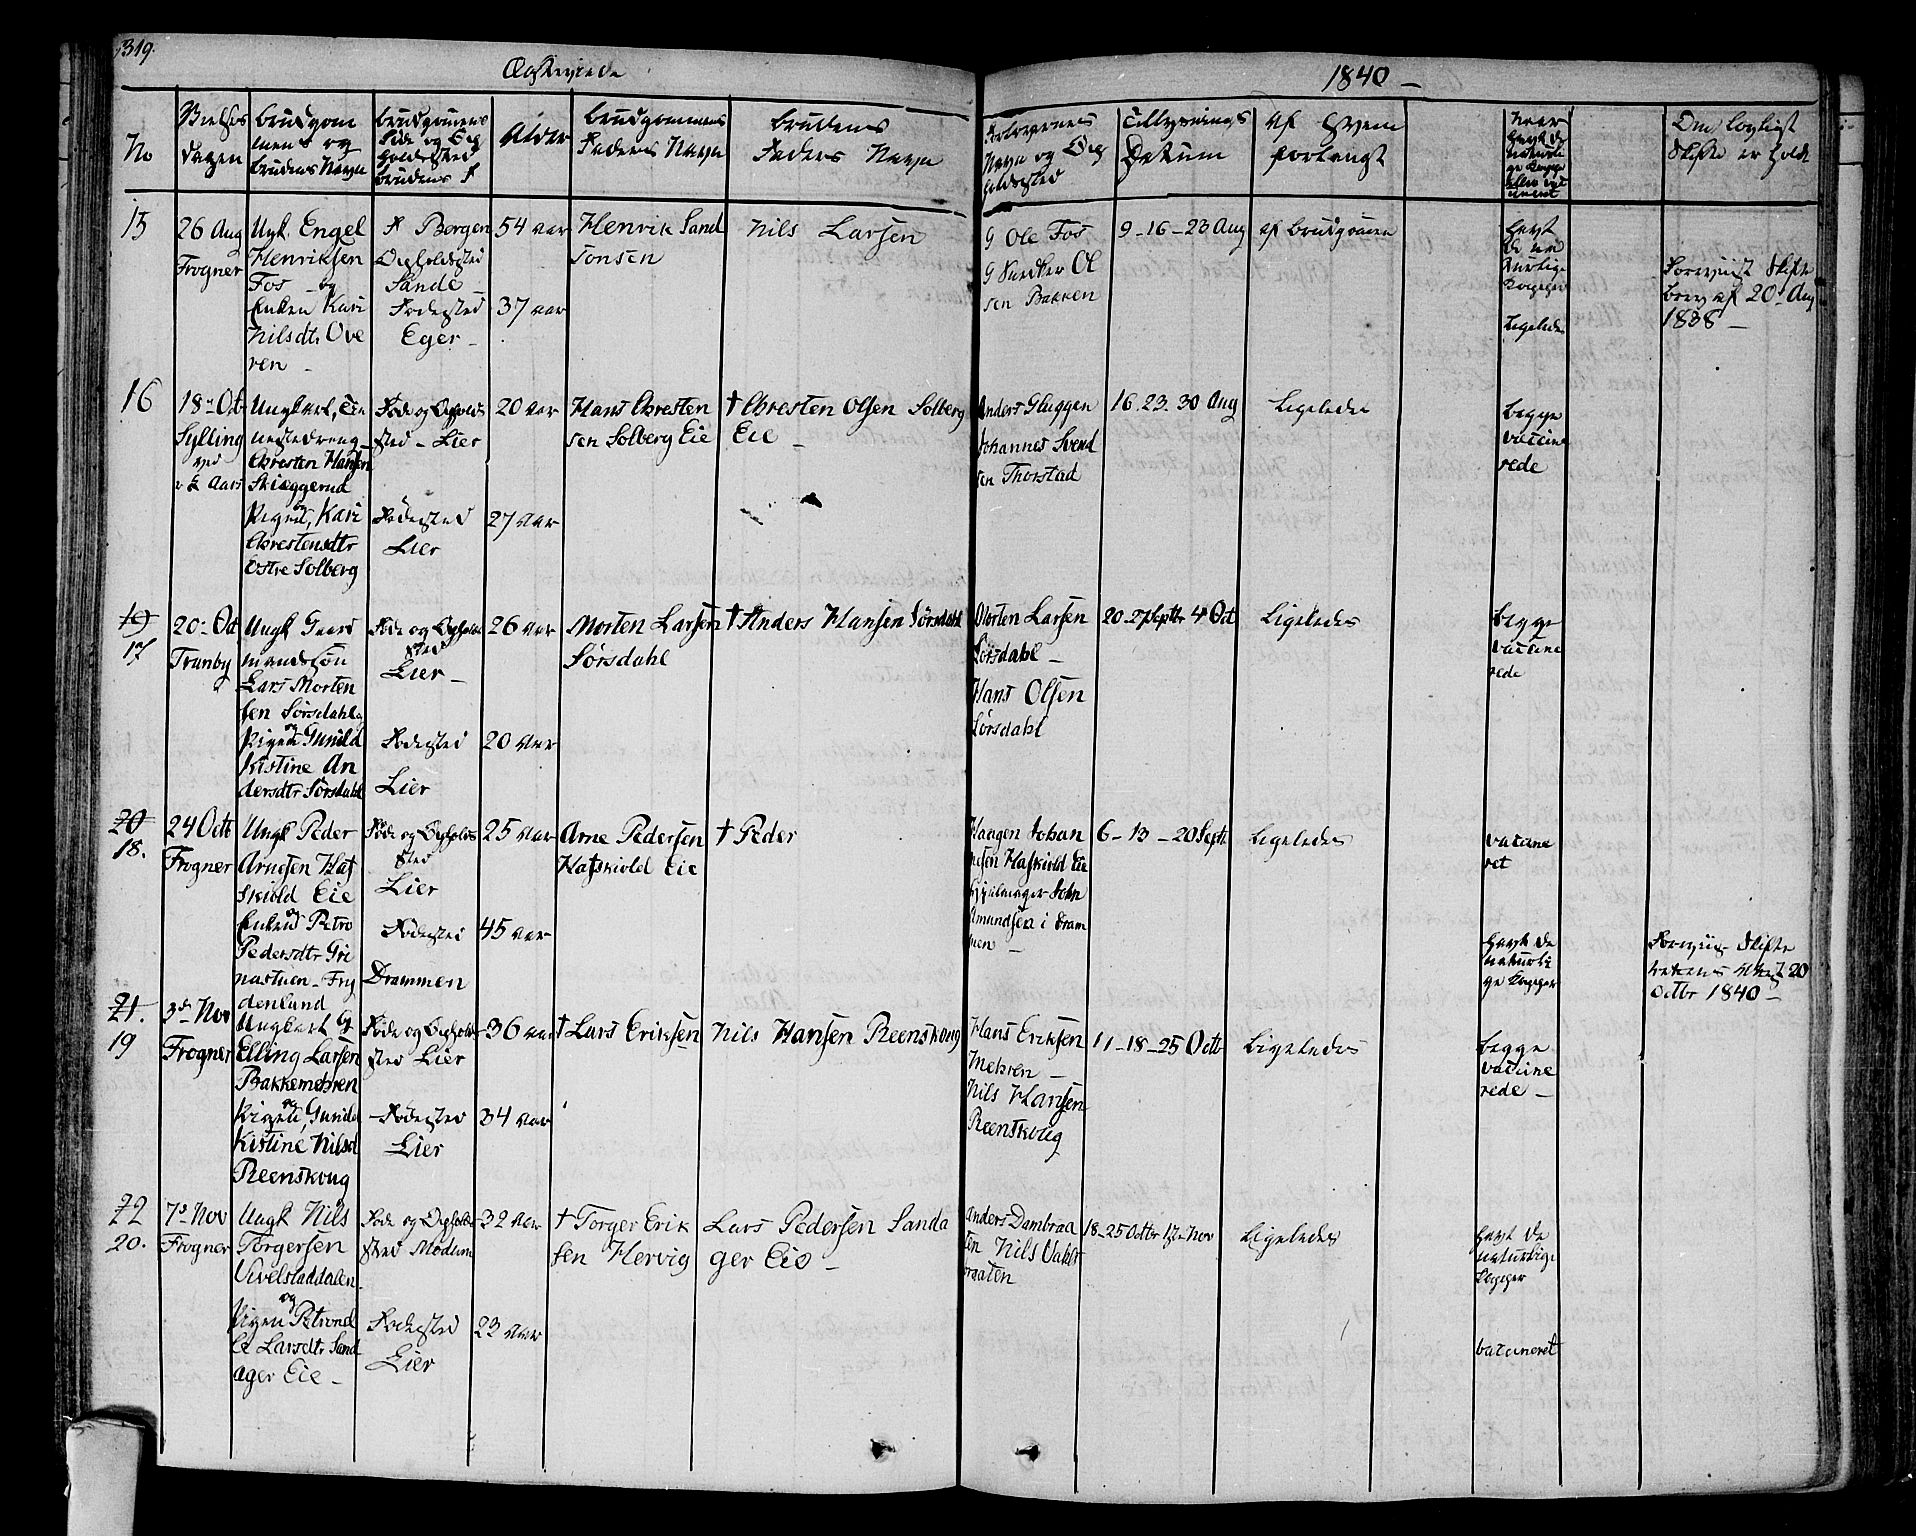 319.
Ægteviede
1840 —
No
Vielses
dagen
brudgom
mens og
brudens Navn
brudgommens
Føde og Op
holdsted
brudens F
Alder
brudgommens
Faders Navn
brudens
Faders Navn
Forlovernes
Navn og Op
holdssted
Tillysnings
Datum
af Hvem
forlangt
Om lovligt
Skifte er holdt
15
26 Aug
Frogner
Ungk. Engel
Henriksen
Fos og
Enken Kari
Nilsdtr Ove
ren
F Bergen
Opholdsted
Sande
Fødested
Eger
54 aar
37 aar
Henrik Sand
sonsen
Nils Larsen
G Ole Fos
G Snedker Ol
sen Bakken
9 - 16 - 23 Aug
af brudgomen
havt
de na
turlige
Kopper
Ligelede
Forevist Skifte
brev af 20de Aug
1838 —
16
18de Oct
Sylling
ved
Aars
Ungkarl,
Chresten Hansen
Skiæggerud
og
Pigen, Kari
Chrestensdtr
Østre Solberg
Føde og Opholds
sted - Lier
Fødested
Lier
20 aar
27 aar
Hans Chresten
sen Solberg Eie
† Chresten Olsen Solberg
Eie
Anders Gluggen
Johannes Svend
sen Thorstad
16. 23. 30 Aug
Ligelede
begge
vaccine
rede
19
17
20de Oct
Tranby
Ungk Gaard
mandssøn
Lars Morten
sen Sørsdahl
og
Pigen Gunild
Kistine An
dersdtr Sørsdahl
Føde og Opholds
sted
Lier
Fødested
Lier
26 aar
20 aar
Morten Larsen
Sørsdahl
† Anders Hansen Sørsdahl
Morten Larsen
Sørsdahl —
Hans Olsen
Sørsdahl
20 - 27 Septbr 4 Oct
Ligeledes
begge
vaccine
rede
20
18.
24 Octb
Frogner
Ungk Peder
Arnesen Haf
skiold Eie
og
Enken Petro
Pedersdtr Gri
nastuen - Fry
denlund
Føde og Opholds
sted
Lier
Fødested
Drammen
25 aar
45 aar
Arne Pedersen
Hafskiold Eie
† Peder
Haagen Johan
nesen Hafskiold Eie
Hjulmager John
Amundsen i Dram
men —
6 - 13 - 20 Septb
Ligeledes
vaccine
ret
havt de
naturli
ge Kopper
Octbr 1840 —
21.
19
3de Nov
Frogner
Ungkarl G
Elling Larsen
Bakkemehren
og
Pigen, Gunild
Kistine Nilsd
Reenskoug
Føde og Ophold
sted Lier
Fødested
Lier
36 aar
34 aar
† Lars Eriksen
Nils Hansen Reenskoug
Hans Eriksen
Mehren —
Nils Hansen
Reenskoug
11 - 18 - 25 Octb
Ligeledes
begge
vaccine
rede —
22
20.
7de Nov
Frogner
Ungk Nils
Torgersen
Vivelstaddalen
og
Pigen Petronel
le Larsdtr Sand
ager Eie —
Føde og Opholds
sted Modum
Fødested
Lier
32 aar
23 aar
† Torger Erik
sen Hervig
Lars Pedersen Sanda
ger Eie —
Anders Dambraa
ten Nils
braaten
18 - 25 Octbr 1ste Nov
Ligeledes
havt de
naturlige
Kopper
vaccineret